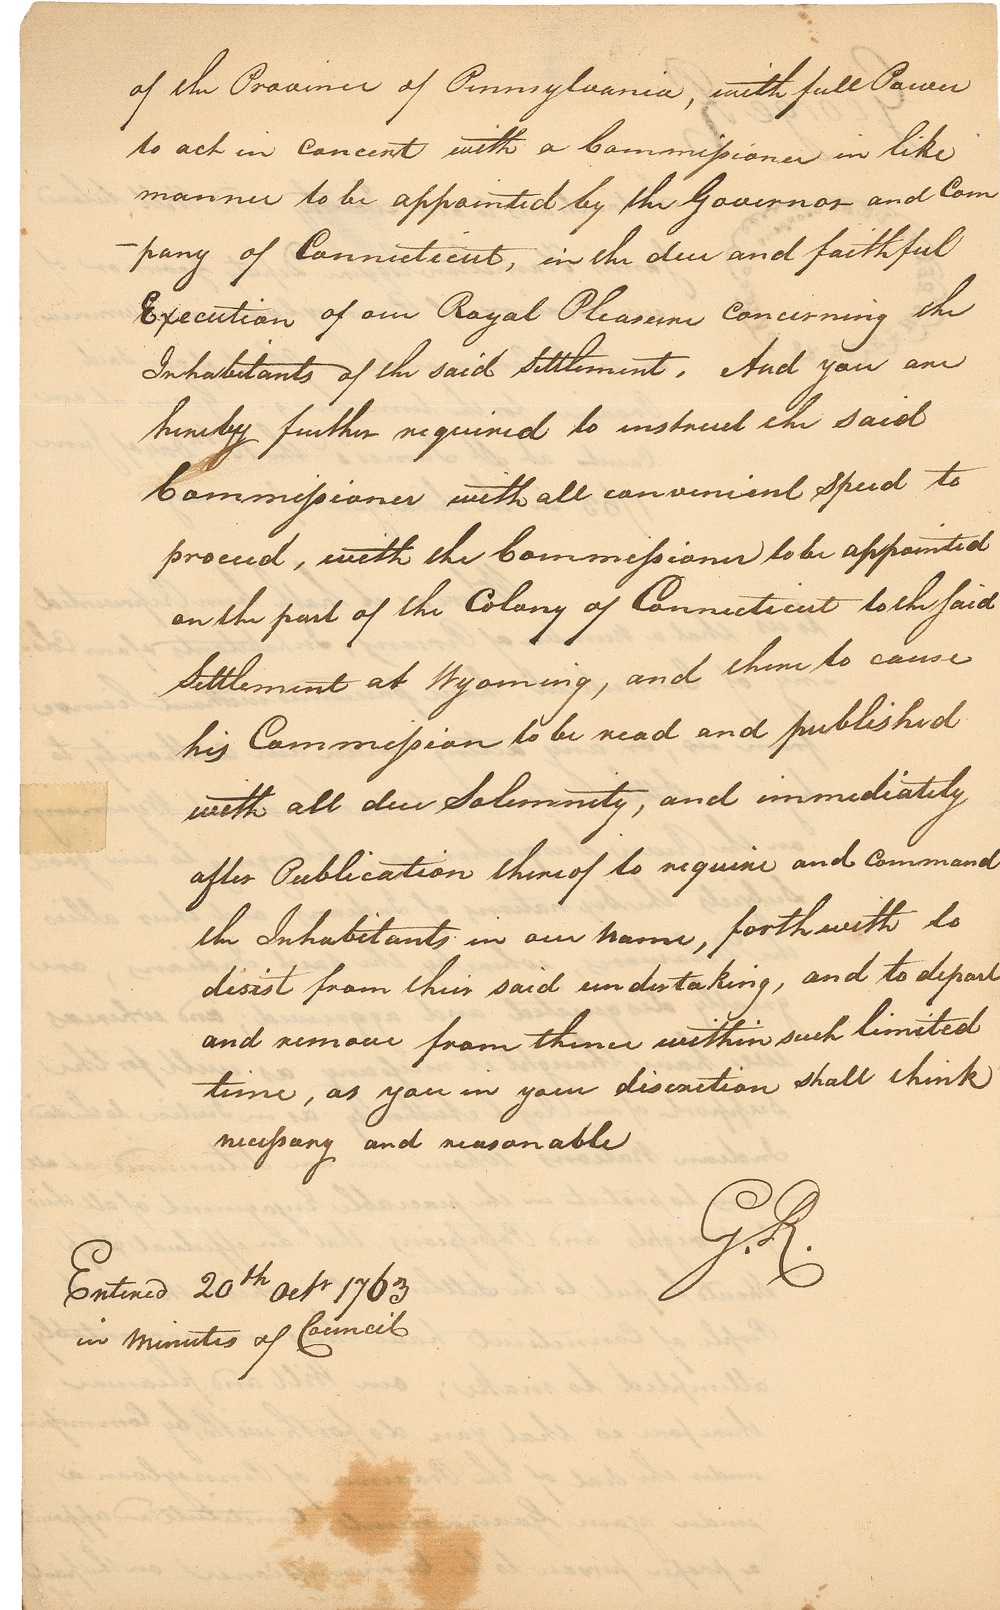 of the Province of Pennsylvania, with full Power
to act in concert with a Commissioner in like
manner to be appointed by the Governor and Com
-pany of Connecticut, in the due and faithful
Execution of our Royal Pleasure concerning the
Inhabitants of the said Settlement. And you are
hereby further required to instruct the said
Commissioner with all convenient Speed to
proceed, with the Commissioner to be appointed
on the part of the Colony of Connecticut to the said
Settlement at Wyoming, and there to cause
his Commission to be read and published
with all due Solemnity, and immediately
after Publication thereof to require and command
the Inhabitants in our Name, forthwith to
desist from their said undertaking, and to depart
and remove from thence within such limited
time, as you in your discretion shall think
necessary and reasonable
G.R.
Entered 20th Octr 1763
in Minutes of Council